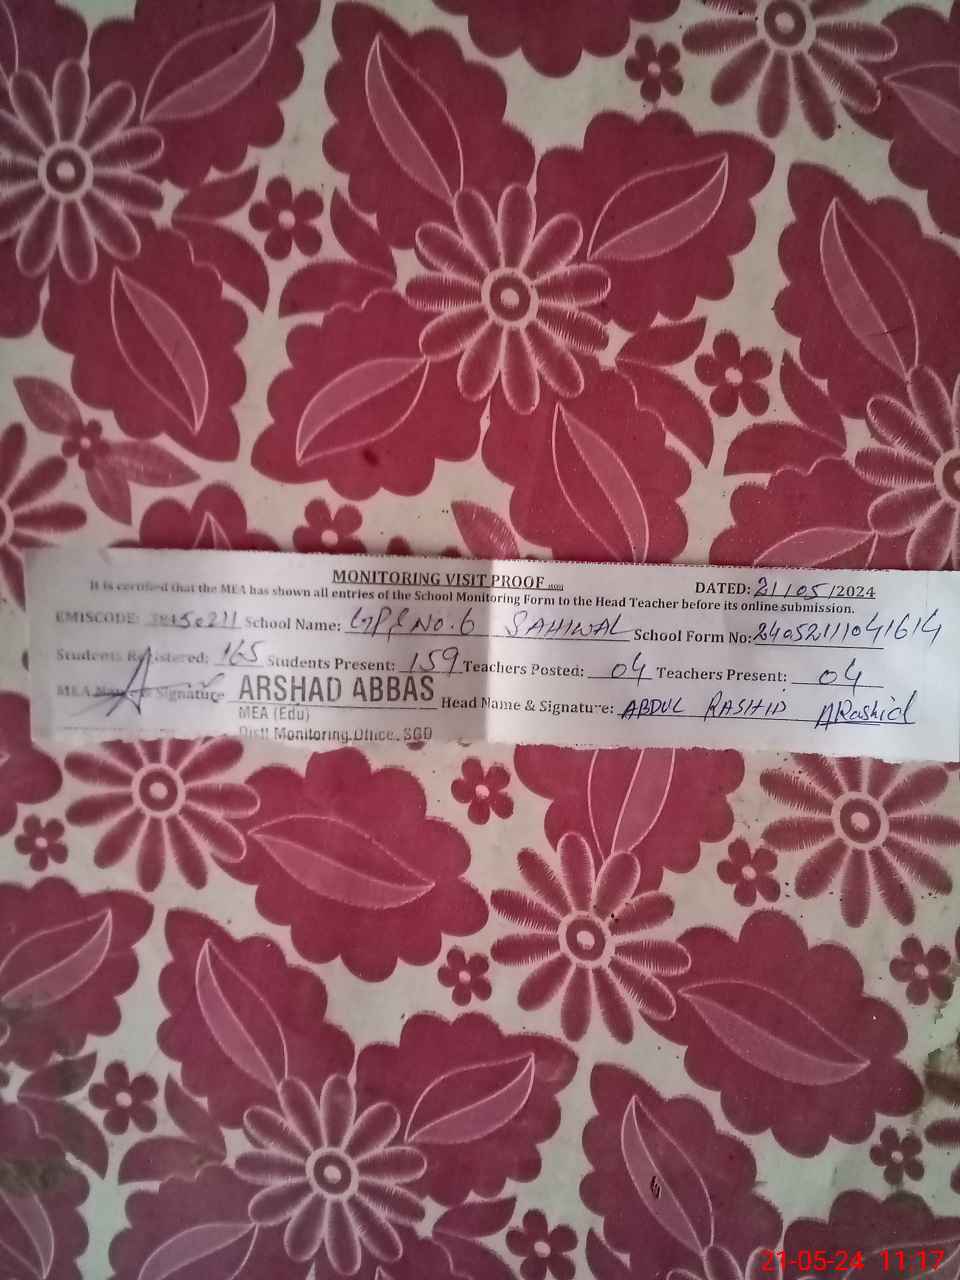 MONITORING VISIT PROOF
DATED: 21/05/2024
It is certified that the MEA has shown all entries of the School Monitoring Form to the Head Teacher before its online submission.
EMISCODE: School Name: GPS No. 6 SAHIWAL School Form No: 24052111041614
Students Registered: 165 Students Present: 159 Teachers Posted: 04 Teachers Present: 04
MEA Name & Signature ARSHAD ABBAS Head Name & Signature: ABDUL RASHID ARashid
MEA (Edu)
Distt Monitoring Office, SGD
21-05-24 11:17